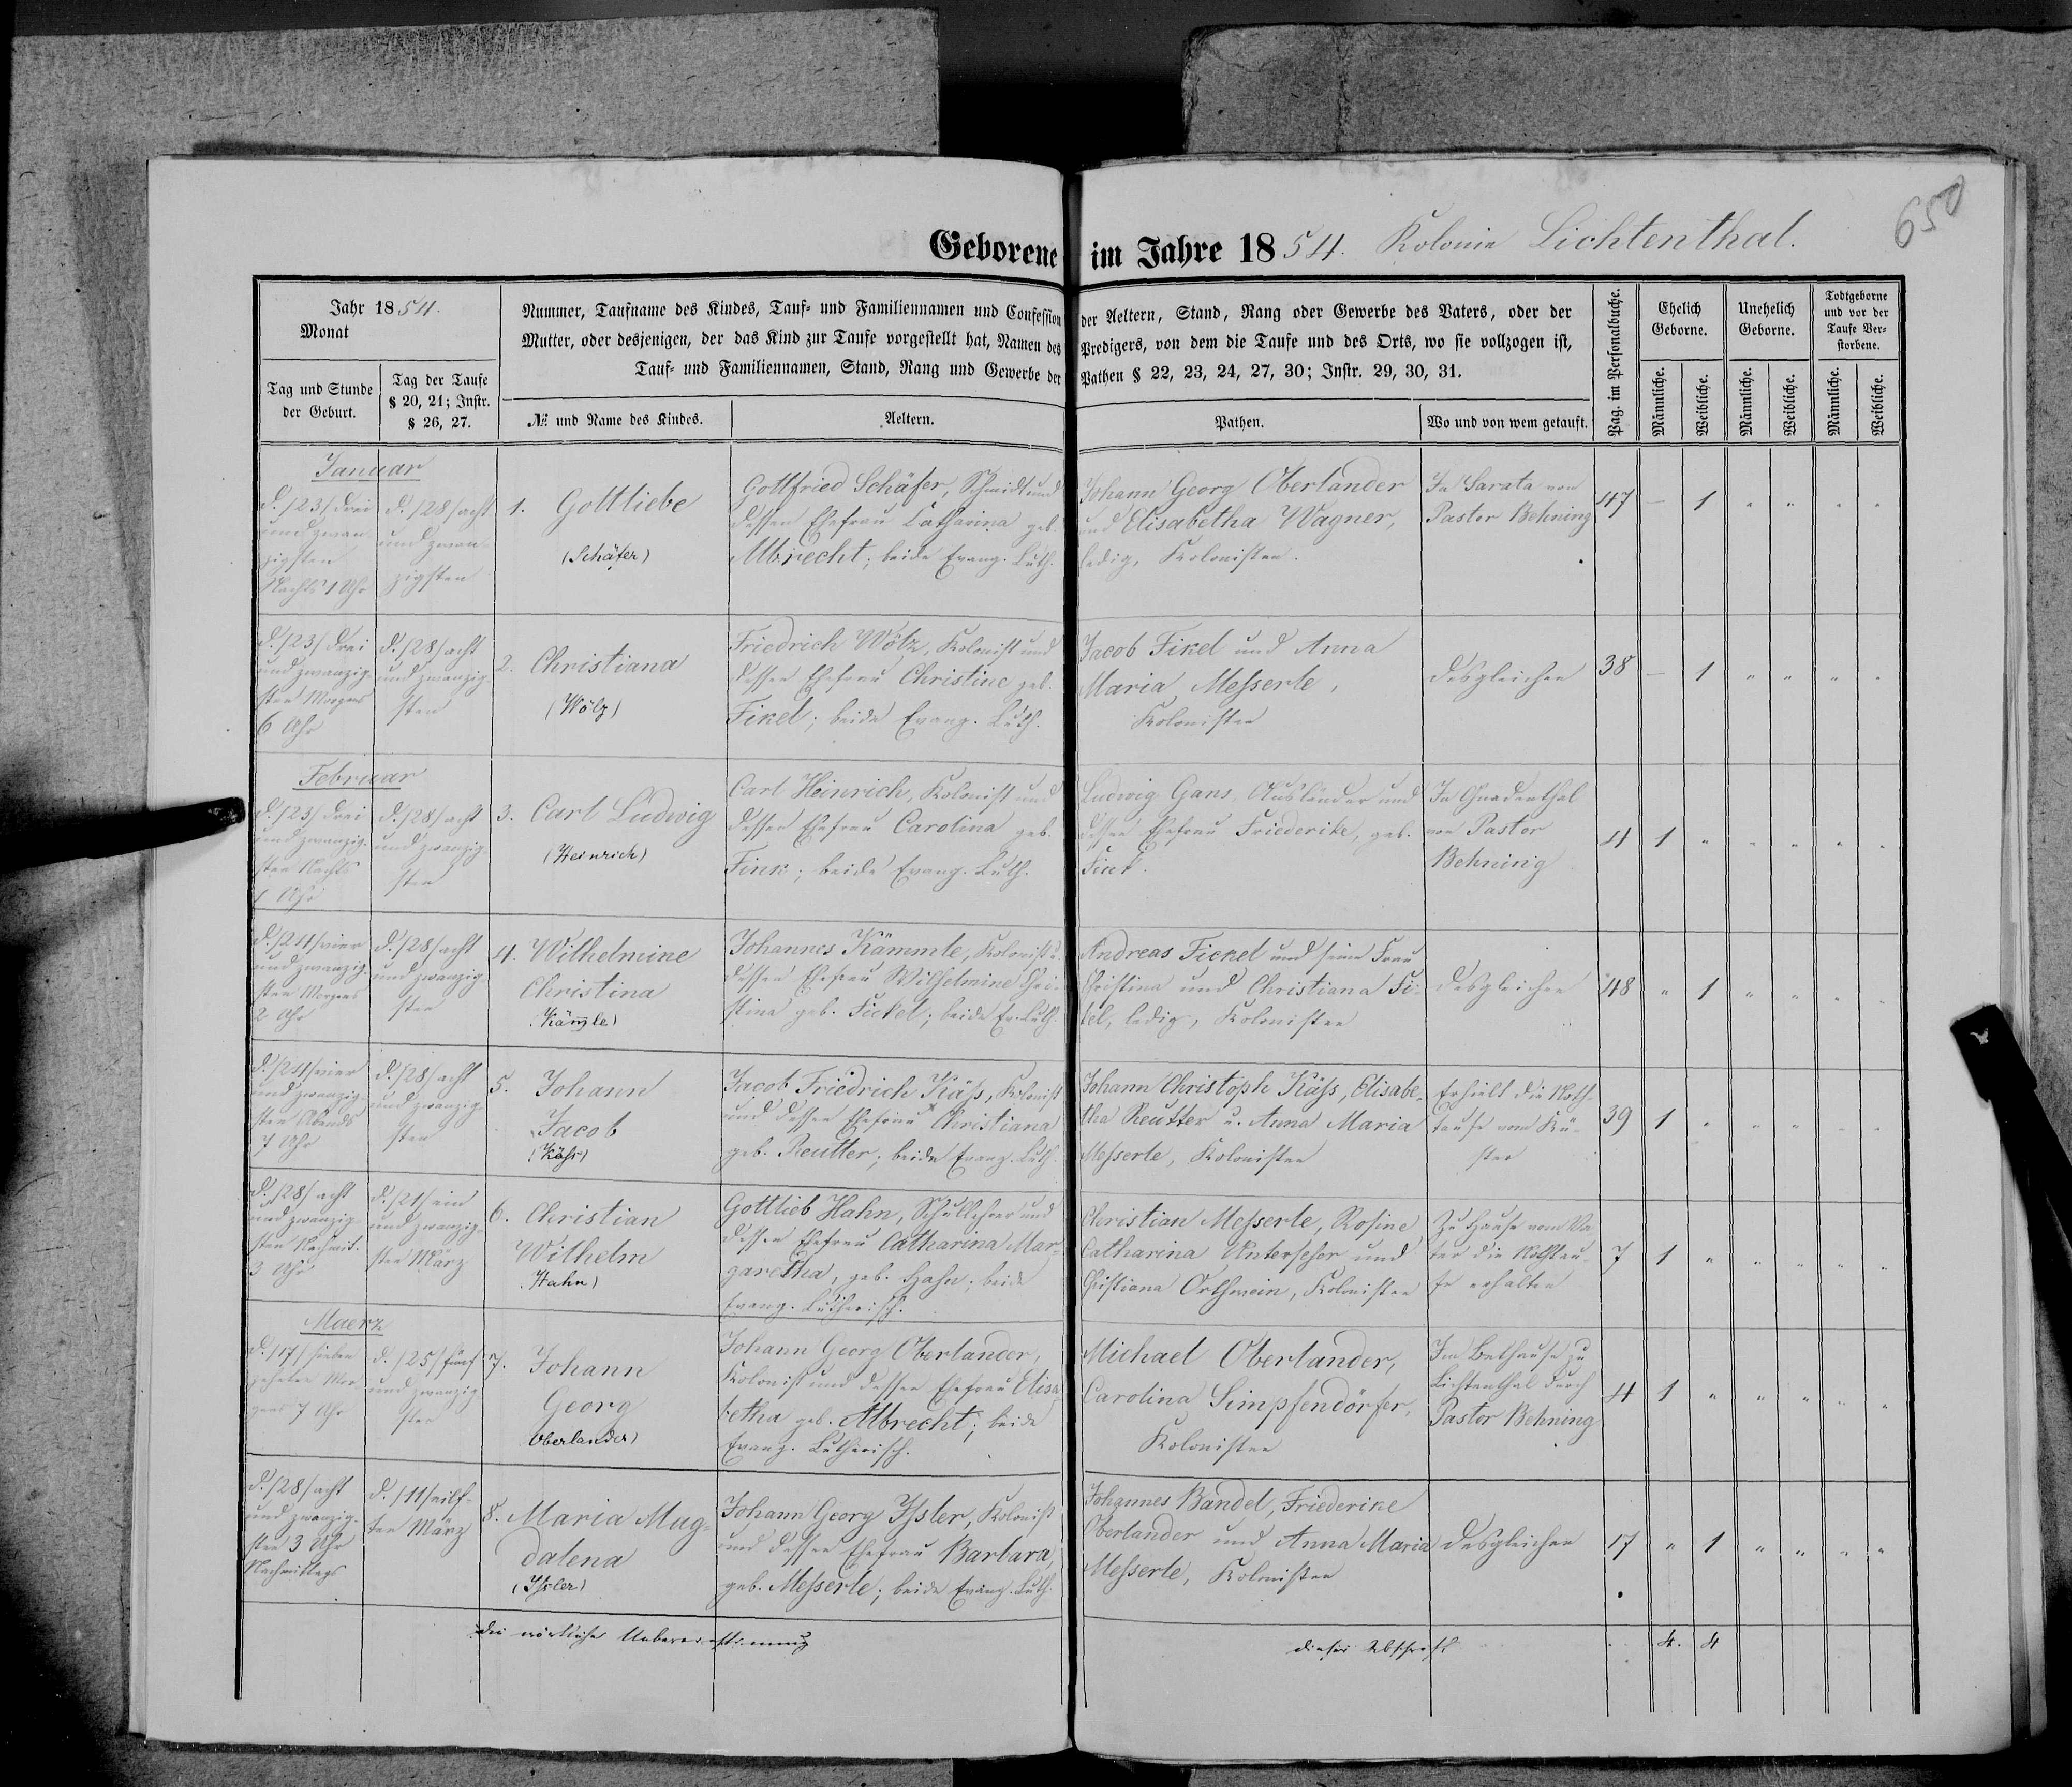 650
Geborene im Jahre 1854. Kolonie Lichtenthal.
Jahr 1854.
Monat
Tag und Stunde
der Geburt.
Tag der Taufe
§ 20, 21; Instr.
§ 26, 27.
Nummer, Taufname des Kindes, Tauf- und Familiennamen und Confession
Mutter, oder desjenigen, der das Kind zur Taufe vorgestellt hat, Namen des
Tauf- und Familiennamen, Stand, Rang und Gewerbe der
№ und Name des Kindes.
Aeltern.
der Aeltern, Stand, Rang oder Gewerbe des Vaters, oder der
Predigers, von dem die Taufe und des Orts, wo sie vollzogen ist,
Pathen § 22, 23, 24, 27, 30; Instr. 29, 30, 31.
Pathen.
Wo und von wem getauft.
Pag. im Personalbuche.
Ehelich
Geborne.
Unehelich
Geborne.
Todtgeborne
und vor der
Taufe Ver-
storbene.
Männliche.
Weibliche.
Männliche.
Weibliche.
Männliche.
Weibliche.
Januar
d. /23/ drei
und zwan-
zigsten
Nachts 1 Uhr
d. /28/ acht
und zwan-
zigsten
1. Gottliebe
(Schäfer)
Gottfried Schäfer, Schmidt und
dessen Ehefrau Catharina geb.
Albrecht; beide Evang. Luth.
Johann Georg Oberlander
und Elisabetha Wagner,
ledig, Kolonisten.
In Sarata von
Pastor Behning
47 — 1 " " " "
d. /23/ drei
und zwanzig-
sten Morgens
6 Uhr
d. /28/ acht
und zwanzig-
sten
2. Christiana
(Wölz)
Friedrich Wölz, Kolonist und
dessen Ehefrau Christine geb.
Fikel; beide Evang. Luth.
Jacob Fikel und Anna
Maria Messerle,
Kolonisten
desgleichen
38 — 1 " " " "
Februar
d. /23/ drei
und zwanzig-
sten Nachts
1 Uhr
d. /28/ acht
und zwanzig-
sten
3. Carl Ludwig
(Heinrich)
Carl Heinrich, Kolonist und
dessen Ehefrau Carolina geb.
Fink; beide Evang. Luth.
Ludwig Gans, Ausländer und
dessen Ehefrau Friederike, geb.
Fink.
In Gnadenthal
von Pastor
Behning
4 1 " " " " "
d. /24/ vier
und zwanzig-
sten Morgens
2 Uhr
d. /28/ acht
und zwanzig-
sten
4. Wilhelmine
Christina
(Kämle)
Johannes Kämmle, Kolonist u.
dessen Ehefrau Wilhelmine Chri-
stina geb. Fickel; beide Ev. Luth.
Andreas Fickel und seine Frau
Christina und Christiana Fi-
kel, ledig, Kolonisten
desgleichen
48 " 1 " " " "
d. /24/ vier
und zwanzig-
sten Abends
7 Uhr
d. /28/ acht
und zwanzig-
sten
5. Johann
Jacob
(Käss)
Jacob Friedrich Käss, Kolonist
und dessen Ehefrau Christiana
geb. Reutter; beide Evang. Luth.
Johann Christoph Käss, Elisabe-
tha Reutter u. Anna Maria
Messerle, Kolonisten
Erhielt die Noth-
taufe vom Kü-
ster
39 1 " " " " "
d. /28/ acht
und zwanzig-
sten Nachmit.
3 Uhr
d. /21/ ein
und zwanzig-
sten März
6. Christian
Wilhelm
Hahn)
Gottlieb Hahn, Schullehrer und
dessen Ehefrau Catharina Mar-
garetha, geb. Hahn; beide
Evang. Lutherisch.
Christian Messerle, Rosine
Catharina Unterseher und
Christiana Orthwein, Kolonisten
Zu Hause vom Va-
ter die Nothtau-
fe erhalten
7 1 " " " " "
Maerz
d. /17/ sieben
zehnten Mor-
gens 7 Uhr
d. /25/ fünf
und zwanzig
sten
7. Johann
Georg
Oberlander)
Johann Georg Oberlander,
Kolonist und dessen Ehefrau Elisa-
betha geb. Albrecht; beide
Evang. Lutherisch.
Michael Oberlander,
Carolina Simpfendörfer,
Kolonisten
Im Bethause zu
Lichtenthal durch
Pastor Behning
4 1 " " " " "
d. /28/ acht
und zwanzig-
sten 3 Uhr
Nachmittags
d. /11/ eilf-
ten März
8. Maria Mag-
dalena
(Issler)
Johann Georg Issler, Kolonist
und dessen Ehefrau Barbara,
geb. Messerle; beide Evang. Luth.
Johannes Bandel, Friederike
Oberlander und Anna Maria
Messerle, Kolonisten
desgleichen
17 " 1 " " " "
Die wörtliche Uebereinstimmung dieser Abschrift
4. 4